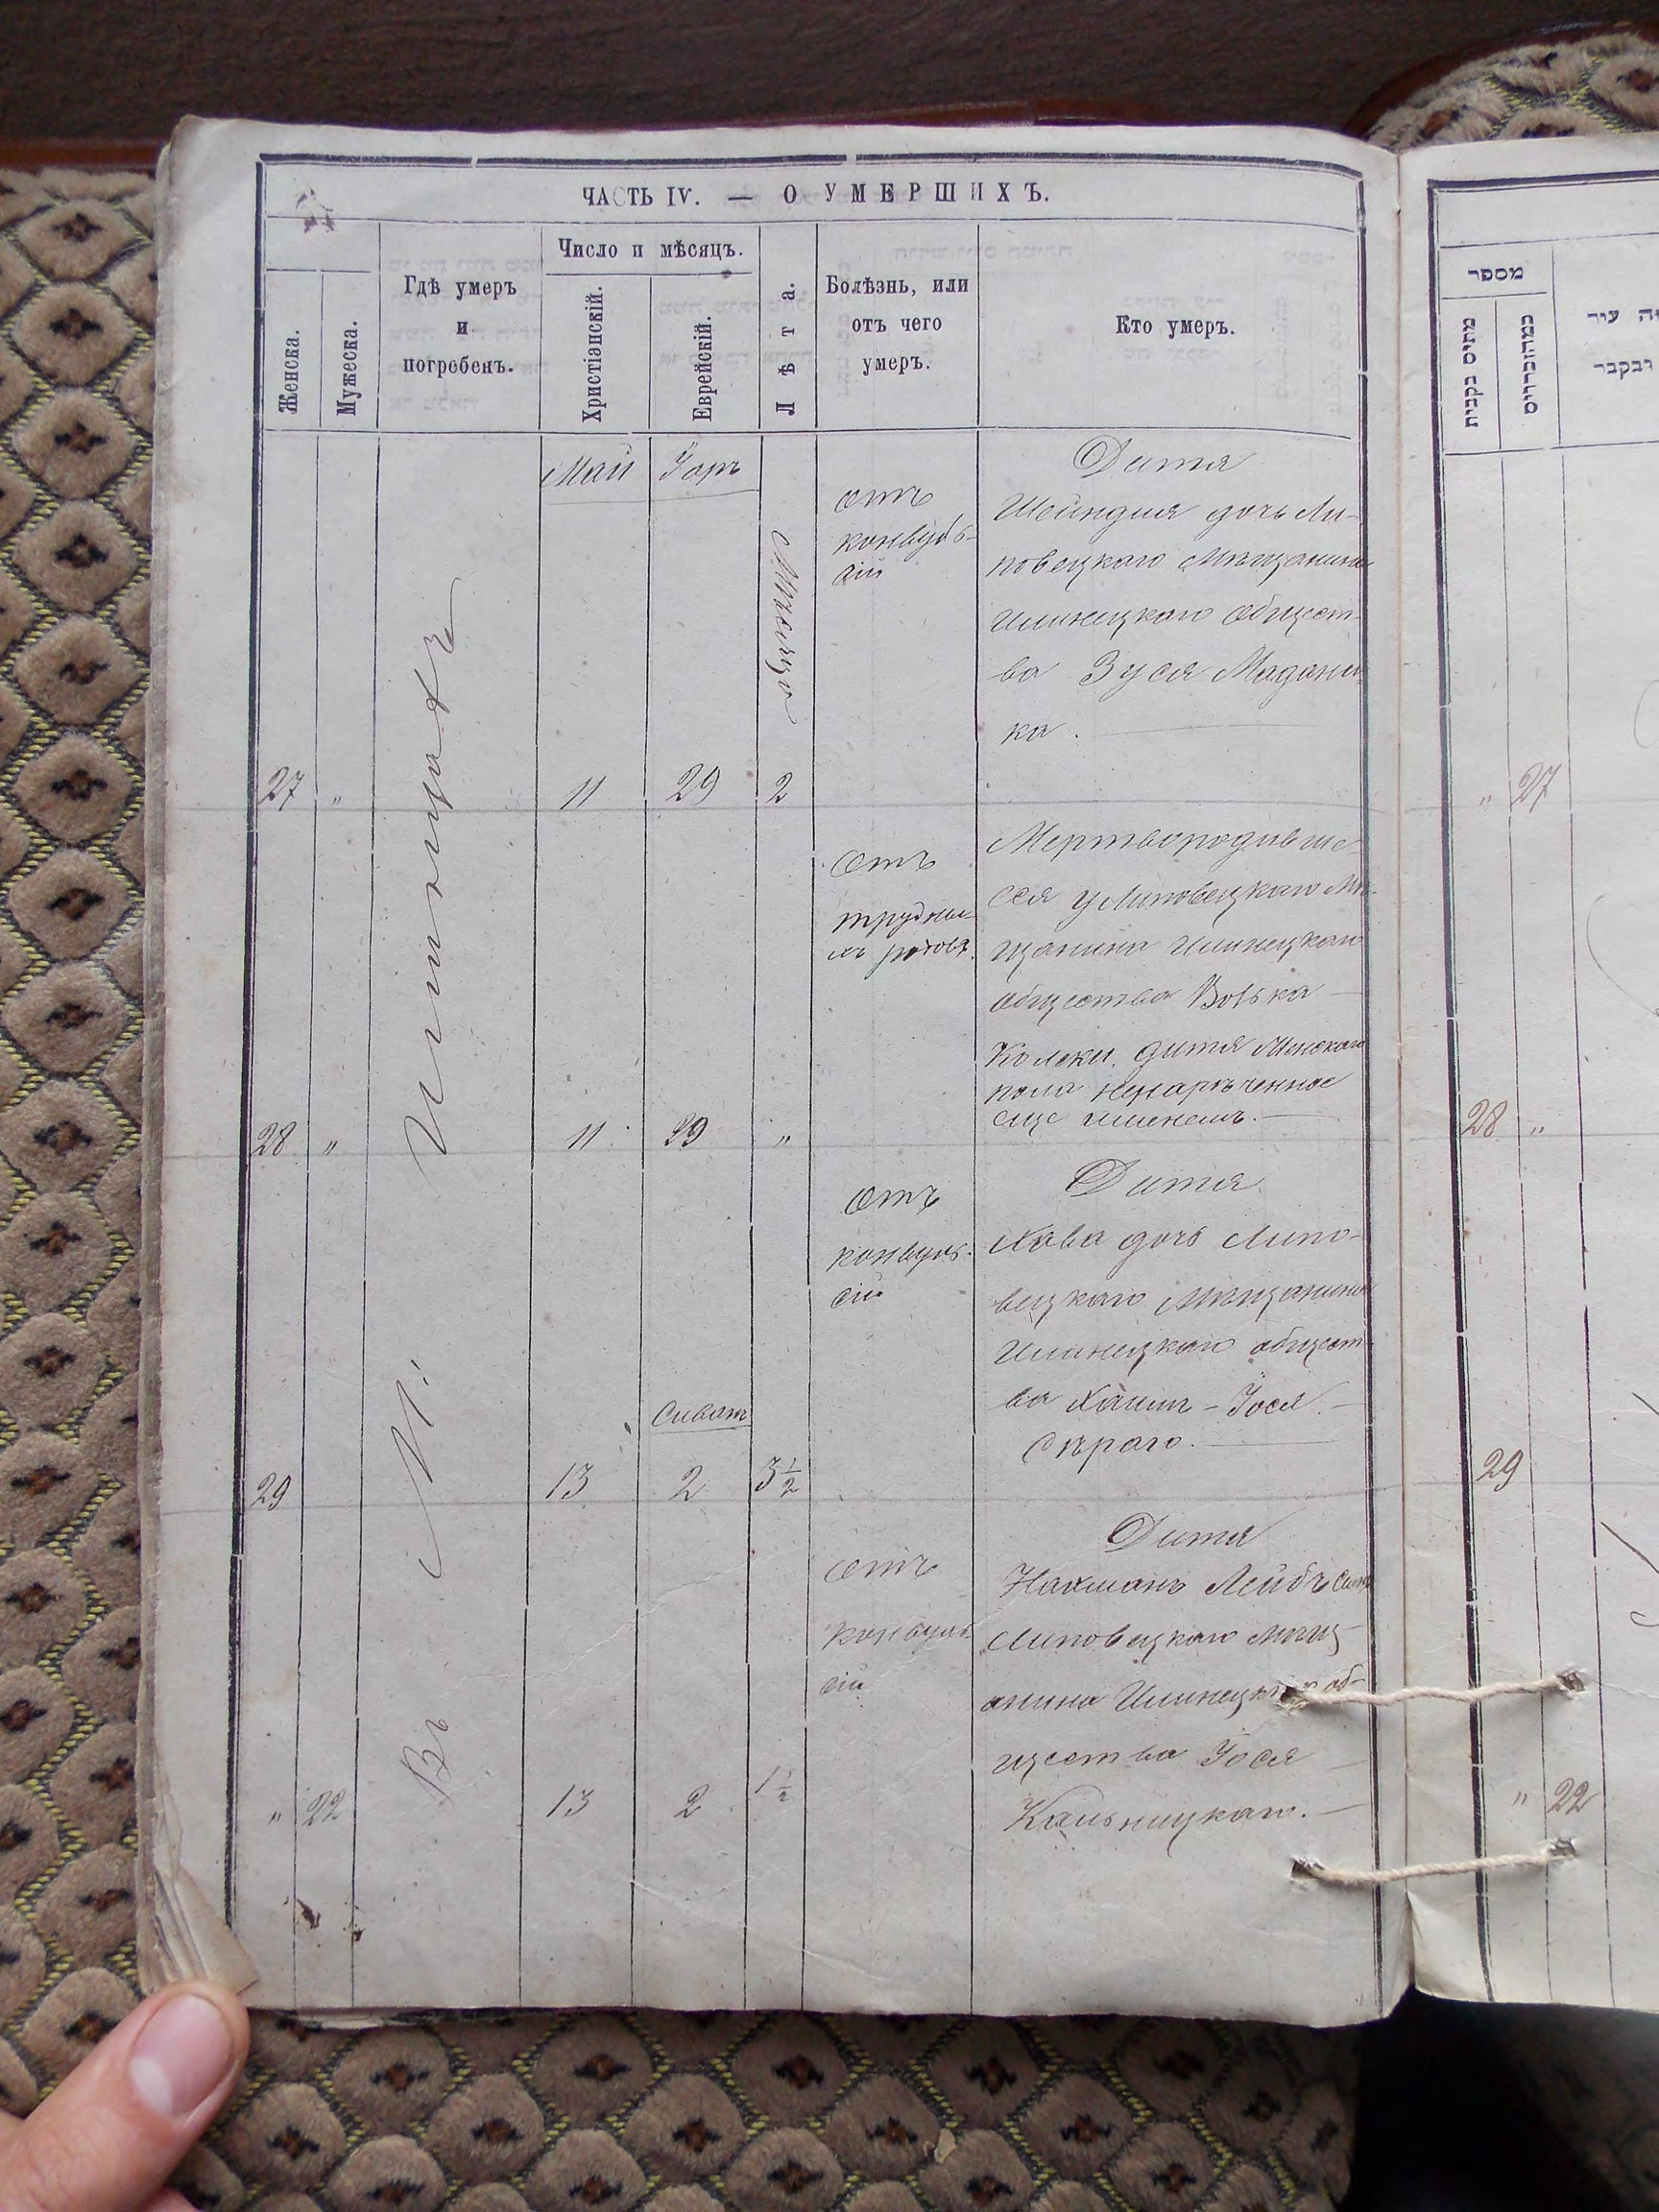 ЧАСТЬ IV. — О УМЕРШИХЪ.
Женска.
Мужеска.
Гдѣ умеръ
и
погребенъ.
Число и мѣсяцъ.
Христіанскій.
Еврейскій.
Лѣта.
Болѣзнь, или
отъ чего
умеръ.
Кто умеръ.
Въ М. Илинцахъ
Май
Іаръ
Мѣсяцо
27
„
11
29
2
отъ
конвуль-
сій
Дитя
Шейндля дочь Ли-
повецкаго Мѣщанина
Илинецкаго общест-
ва Зуся Мадани-
ка.
28
„
11
29
„
отъ
трудны-
хъ родовъ.
Мертвородивше-
еся у Липовецкаго Мѣ-
щанина Илинецкаго
общества Волька
Колеки. дитя Женскаго
пола ненарѣченное
еще именемъ.
29
13
Сиванъ
2
3½
отъ
конвуль-
сій
Дитя
Хава дочь Липо-
вецкаго Мѣщанина
Илинецкаго общест-
ва Хаим - Іося
Сѣраго.
„
22
13
2
1½
отъ
конвуль-
сій
Дитя
Нахманъ Лейбъ сынъ
Липовецкаго Мѣщ-
анина Илинецкаго об-
щества Іося
Кальницкаго.
מספר
מתים בקבית
„ 27
28 „
29
„ 22